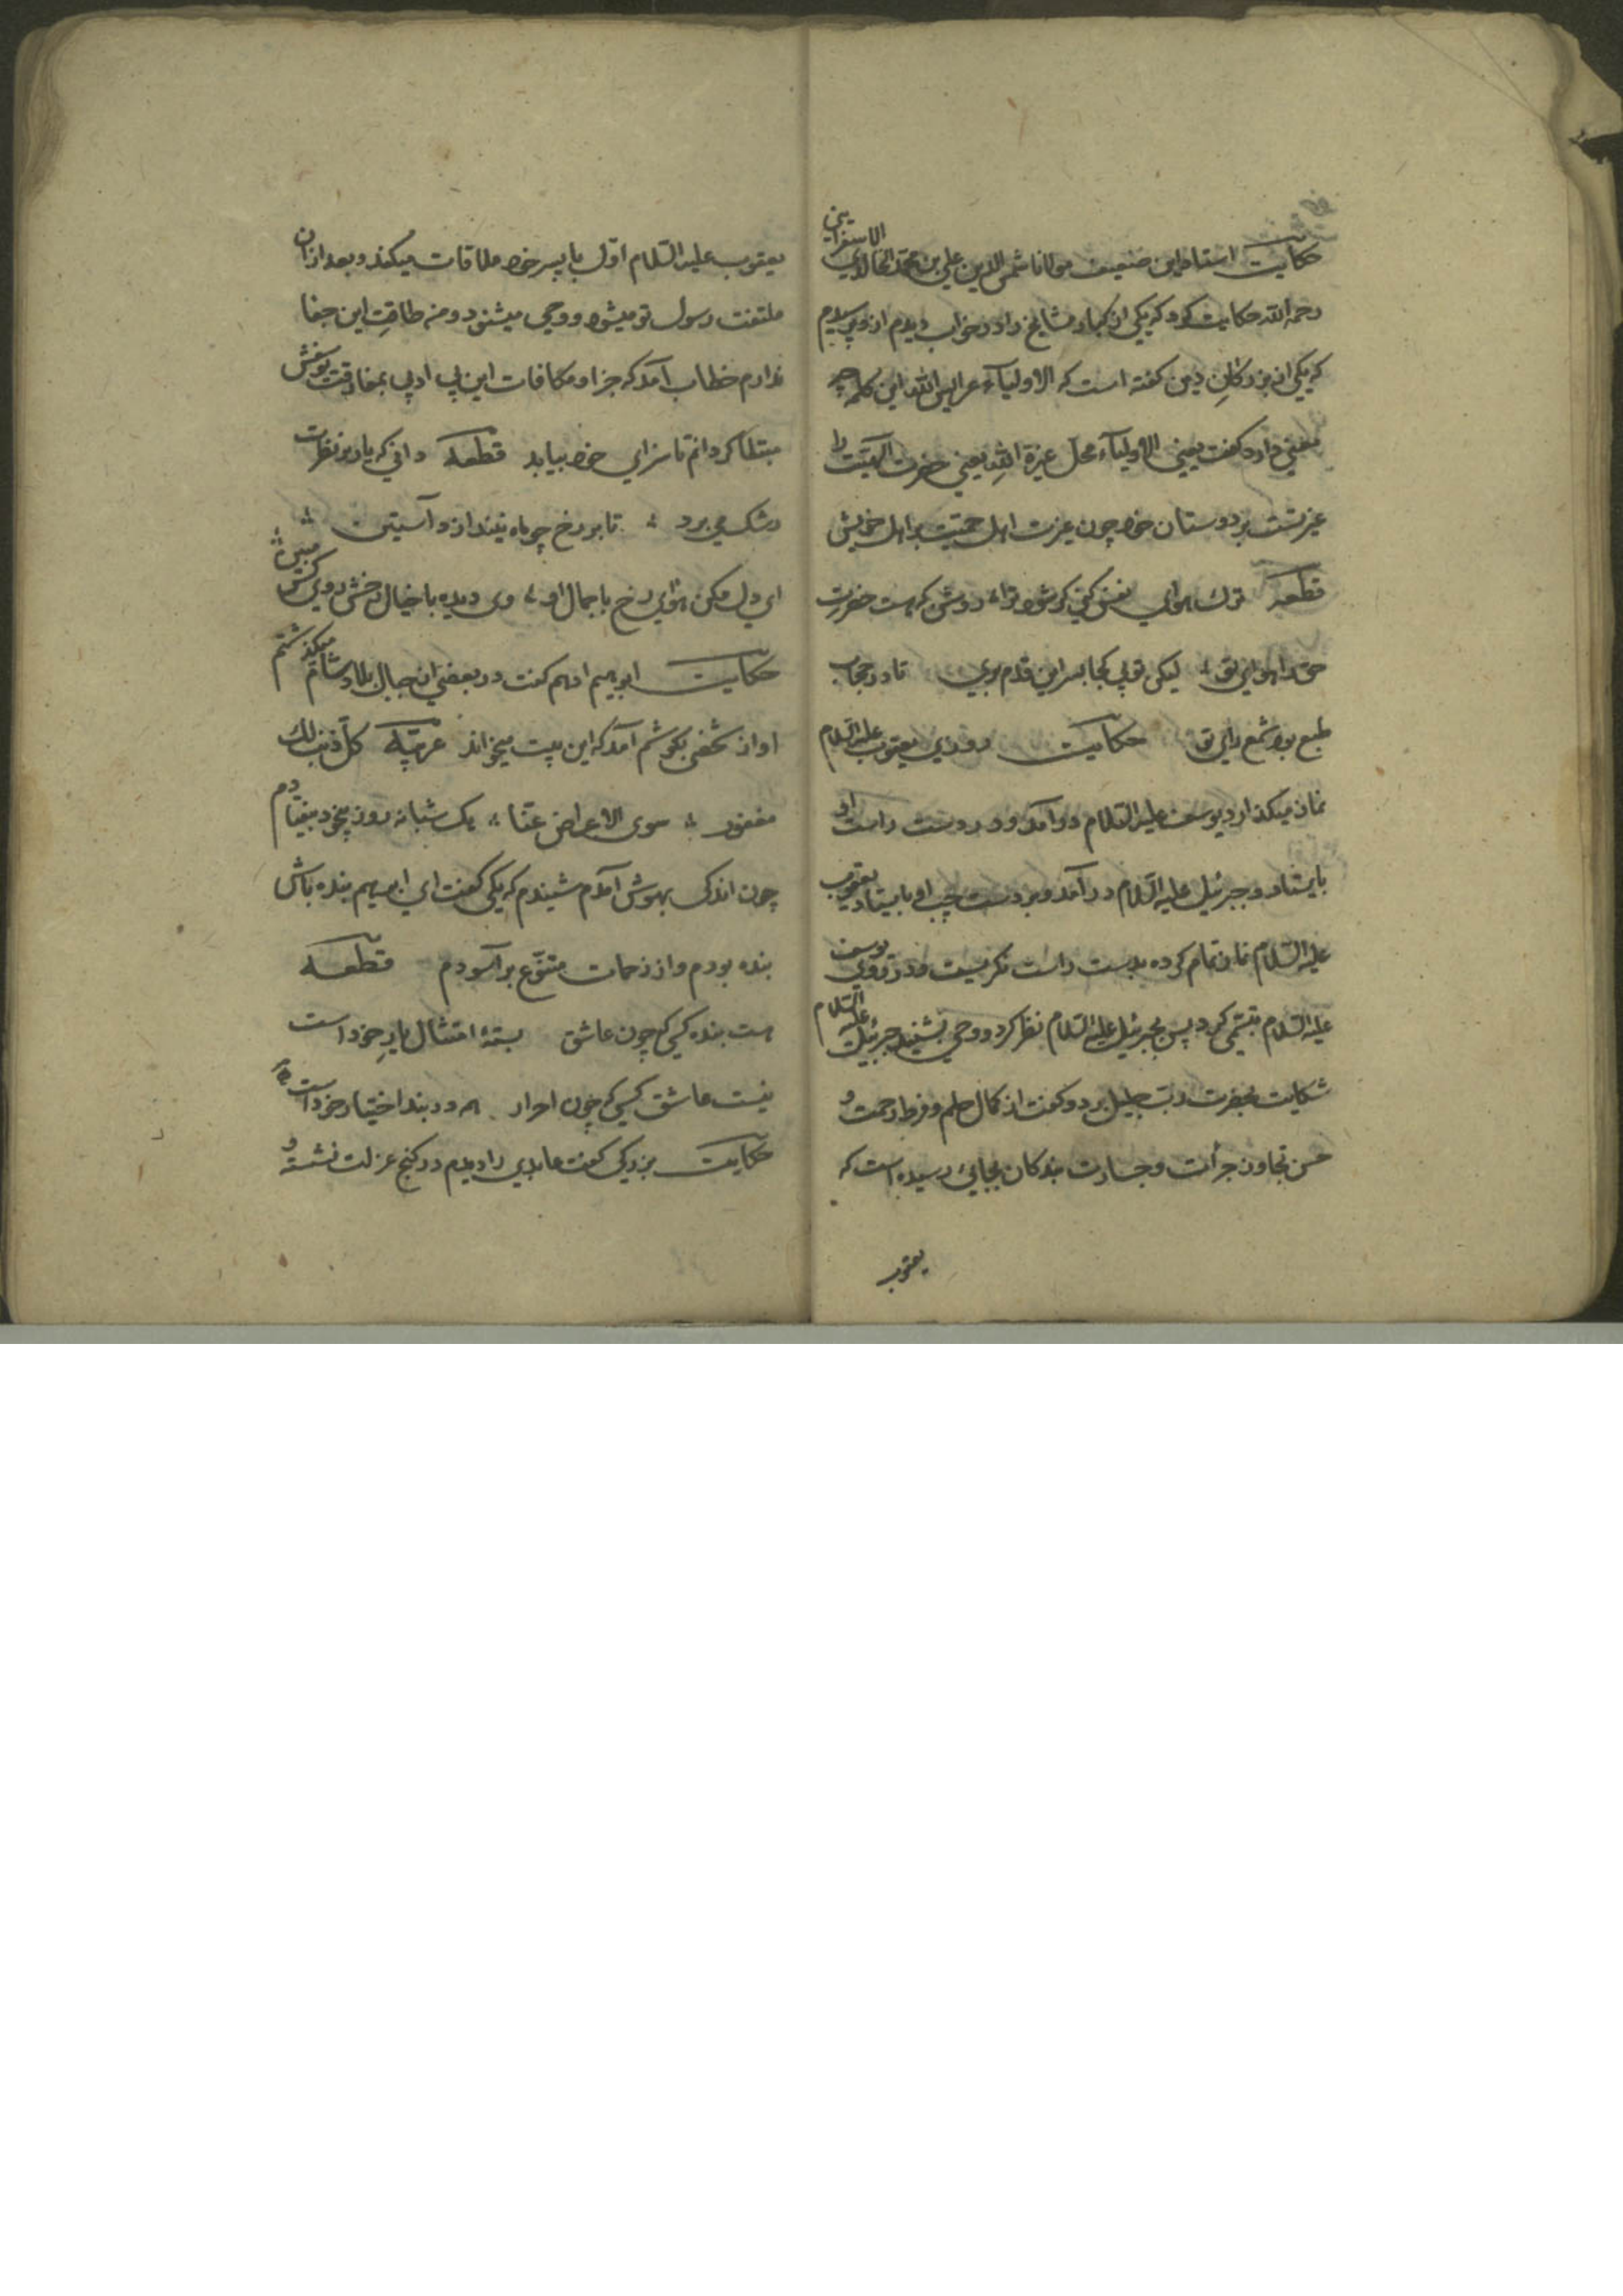 حکایت استاد این ضعیف مولانا شمس الدین علی بن محمد الخالدی الاسفراینی
رحمه الله حکایت کرد که یکی از کبار مشایخ را در خواب دیدم از وی پرسیدم
که یکی از بزرکان دین کفته است که الاولیآء عرایس الله این کلمه چه
معنی دارد کفت یعنی الاولیآء محل غیرة الله یعنی حضرت الهیت را
غیرتست بر دوستان خود چون غیرت اهل حمیت بر اهل خویش
قطعه ترک هوای نفس کنی کر شود ترا روشن که هست حضرت
حق را هوای تو لیکن تو پی کجا بسر این قدم بری تا در حجاب
طبع بود شمع رای تو حکایت روزی یعقوب علیه السلام
نماز میکذارد یوسف علیه السلام در آمد و بر دست راست او
بایستاد و جبرئیل علیه السلام در آمد و بر دست چپ او بایستاد یعقوب
علیه السلام نماز تمام کرده بدست راست نکریست و در روی یوسف
علیه السلام تبسمی کرد پس بجبرئیل علیه السلام نظر کرد و وحی بشنید جبرئیل علیه السلام
شکایت بحضرت رب جلیل برد و کفت از کمال حلم و فرط رحمت و
حسن تجاوز جرأت و جسارت بندکان بجائی رسیده است که
یعقوب
یعقوب علیه السلام اول با پسر خود ملاقات میکند و بعد از ان
ملتفت رسول تو میشود و وحی میشنود و من طاقت این جفا
ندارم خطاب آمد که جزا و مکافات این بی ادبی بمفارقت یوسفش
مبتلا کردانم تا سزای خود بیابد قطعه دانی که یار بر نظرت
رشک می برد تا بر رخ چو ماه نینداز و آستین
ای دل مکن هوای رخ با جمال او وی دیده با خیال رخش روی کس مبین
حکایت ابرهیم ادهم کفت در بعضی از جبال بلاد شام میکذشتم
اواز شخصی بکوشم آمد که این بیت میخواند عربیّه کل ذنب لک
مغفور سوی الاعراض عنّا یک شبانه روز بیخود بیفتادم
چون اندکی بهوش آمدم شنیدم که یکی کفت ای ابرهیم بنده باش
بنده بودم و از زحمات متنوّع بر آسودم قطعه
هست بنده کسی که چون عاشق بستهٔ امتثال یارِ خود است
نیست عاشق کسی که چون احرار در بند اختیار خود است
حکایت بزرکی کفت عابدی را دیدم در کنج عزلت نشسته و